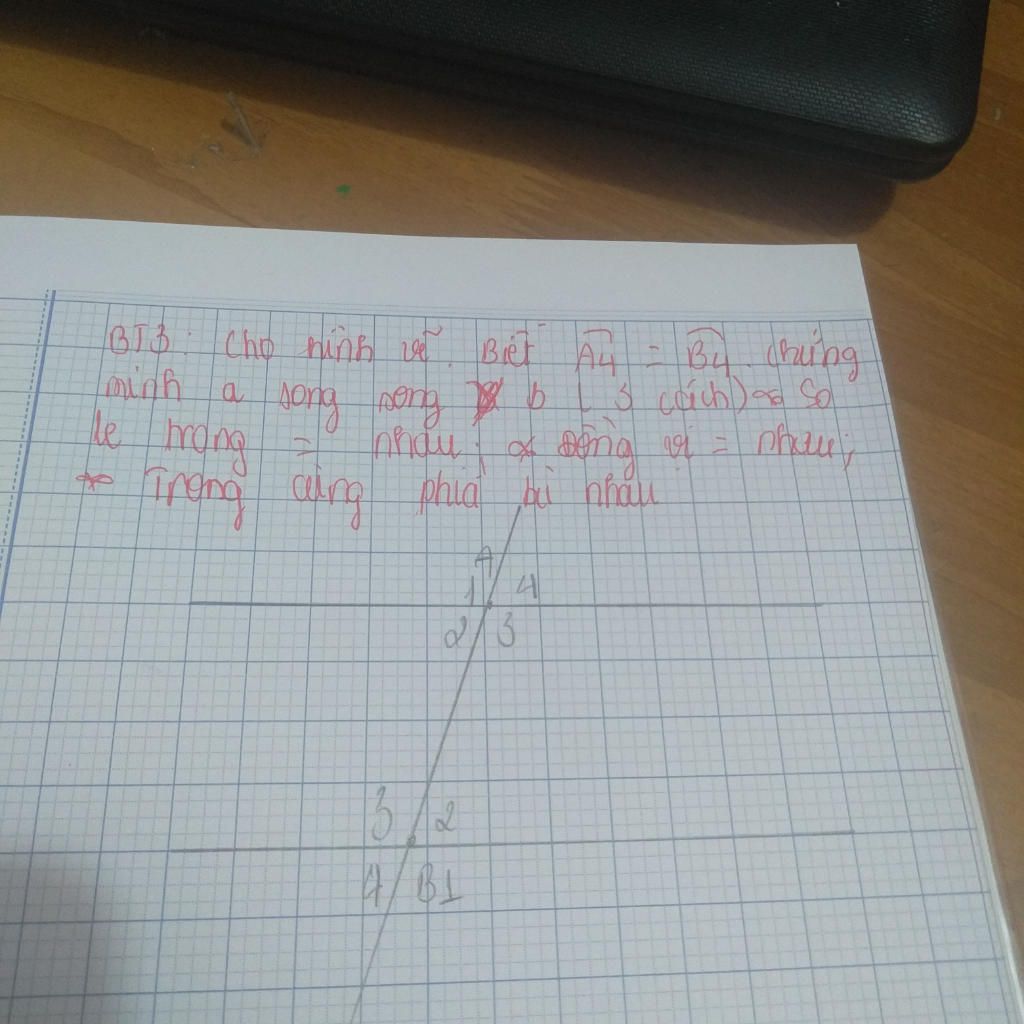 BT3: Cho hình vẽ. Biết A4 = B4. Chứng
minh a song song b ( 3 cách) * So
le trong = nhau; * đồng vị = nhau;
* Trong cùng phía bù nhau
A
1 4
2 3
3 2
4 B1